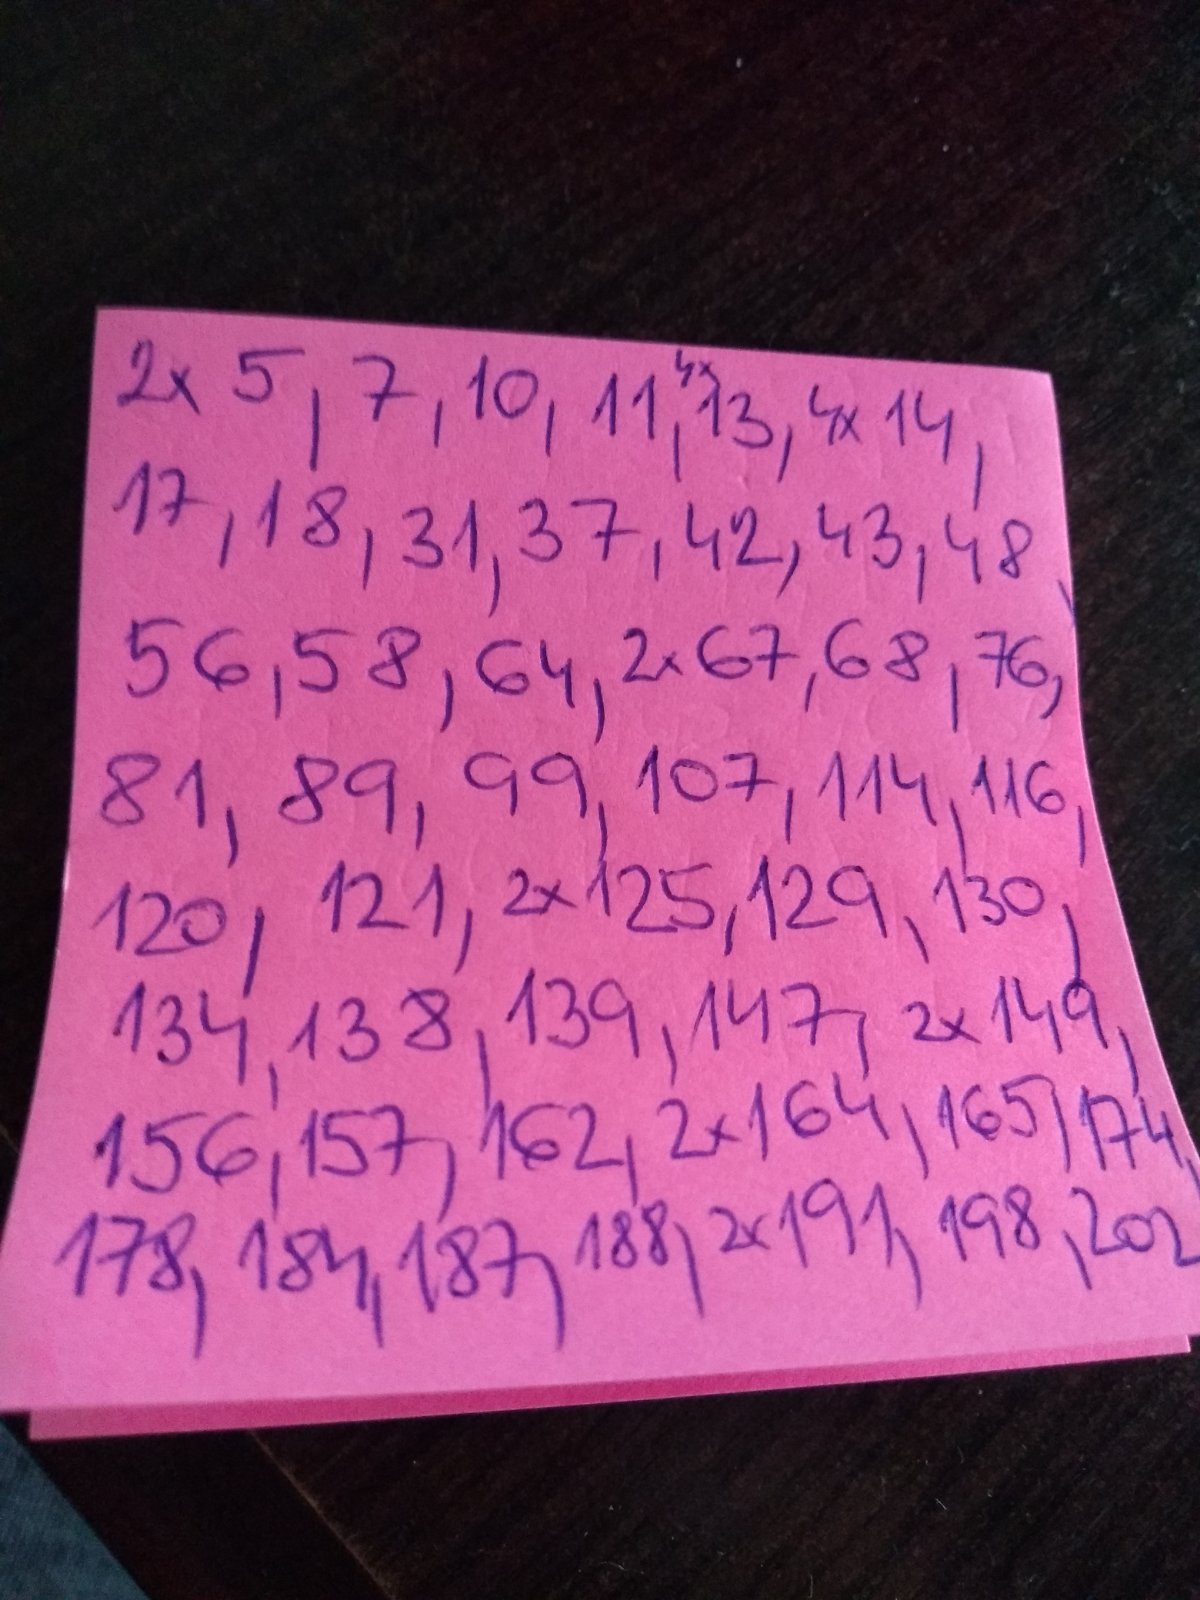 2x 5, 7, 10, 11, 4x 13, 4x 14,
17, 18, 31, 37, 42, 43, 48,
56, 58, 64, 2x 67, 68, 76,
81, 89, 99, 107, 114, 116,
120, 121, 2x 125, 129, 130,
134, 138, 139, 147, 2x 149,
156, 157, 162, 2x 164, 165, 174,
178, 184, 187, 188, 2x 191, 198, 202